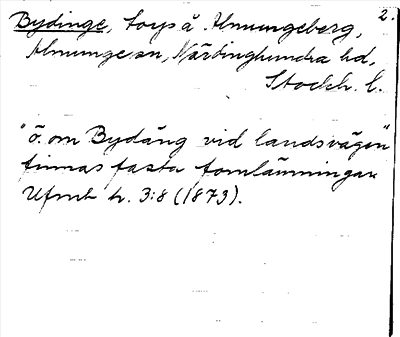 Bydinge, torp å Almungeberg, 2.
Almunge sn, Närdinghundra hd,
Stockh. l.
"ö. om Bydäng vid landsvägen"
finnas fasta fornlämningar
Ufmt h. 3:8 (1873).